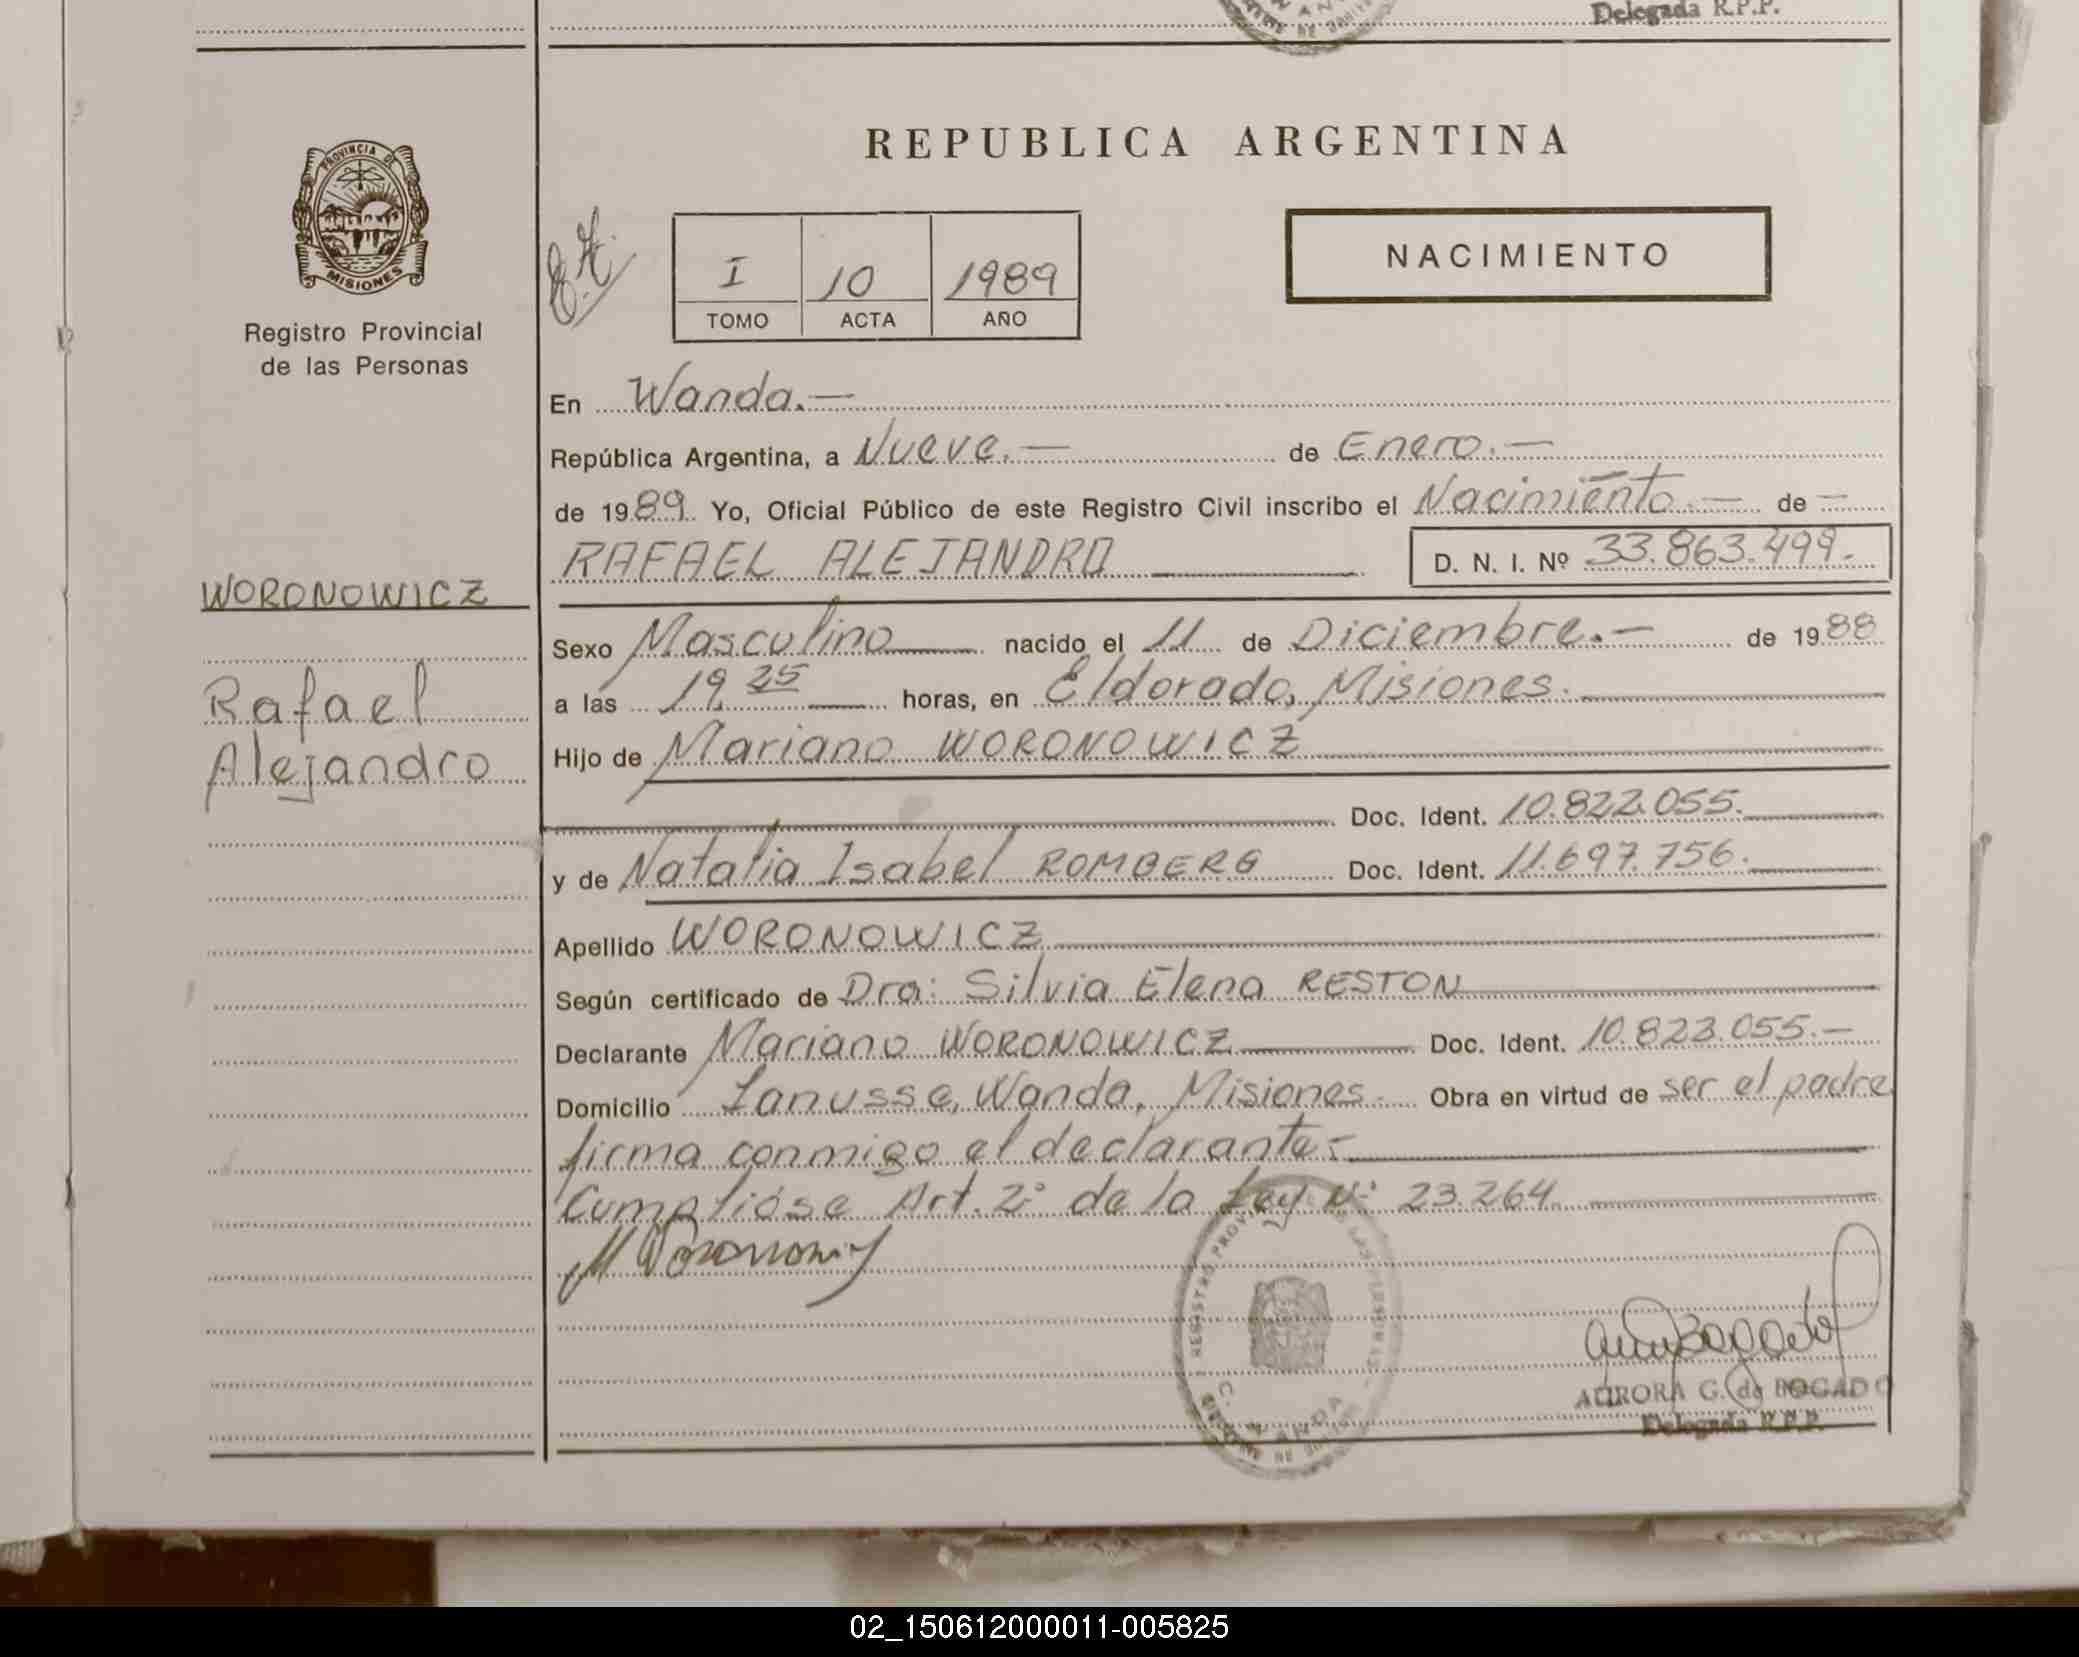 Delegada R.P.P.
PROVINCIA DE
MISIONES
Registro Provincial
de las Personas
WORONOWICZ
Rafael
Alejandro
REPUBLICA ARGENTINA
I 10 1989
TOMO ACTA AÑO
NACIMIENTO
En Wanda.—
República Argentina, a Nueve.— de Enero.—
de 1989 Yo, Oficial Público de este Registro Civil inscribo el Nacimiento.— de —
RAFAEL ALEJANDRO D. N. I. Nº 33.863.499.
Sexo Masculino nacido el 11 de Diciembre.— de 1988
a las 19,25 horas, en Eldorado, Misiones.
Hijo de Mariano WORONOWICZ
Doc. Ident. 10.822.055.
y de Natalia Isabel ROMBERG Doc. Ident. 11.697.756.
Apellido WORONOWICZ
Según certificado de Dra: Silvia Elena RESTON
Declarante Mariano WORONOWICZ Doc. Ident. 10.823.055.—
Domicilio Lanusse, Wanda, Misiones. Obra en virtud de ser el padre
firma conmigo el declarante.-
Cumplióse Art. 2° de la Ley N° 23.264.
AURORA G. de BOGADO
Delegada R.P.P.
02_150612000011-005825